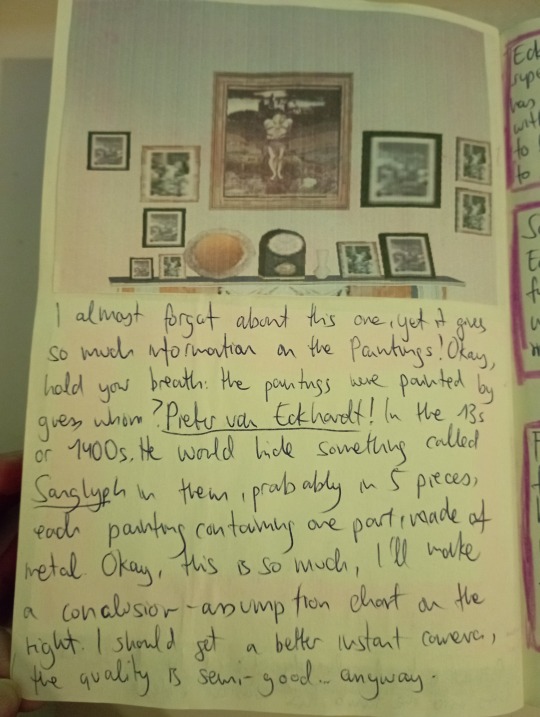 I almost forgot about this one, yet it gives
so much information on the Paintings! Okay,
hold your breath: the paintings were painted by
guess whom? Pieter van Eckhardt! In the 13s
or 1400s. He would hide something called
Sanglyph in them, probably in 5 pieces,
each painting containing one part, made of
metal. Okay, this is so much, I'll make
a conclusion-assumption chart on the
right. I should get a better instant camera,
the quality is semi-good... anyway.